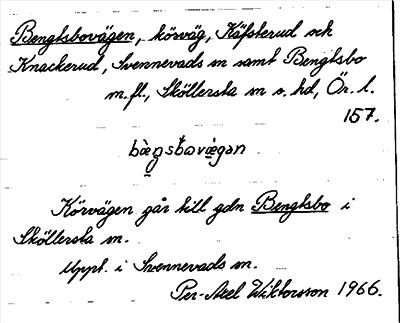 Bengtsbovägen, körväg, Käfsterud och
Knackerud, Svennevads sn samt Bengtsbo
m.fl., Sköllersta sn o. hd, Ör. l.
157.
Körvägen går till gdn Bengtsbo i
Sköllersta sn.
Uppt. i Svennevads sn.
Per-Axel Wiktorsson 1966.